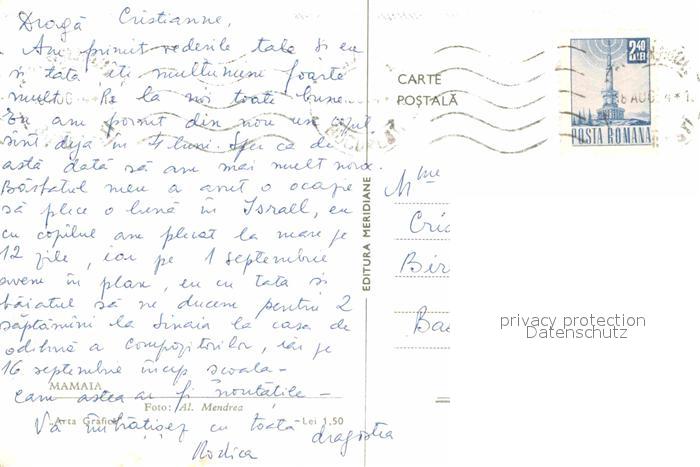 Dragă Cristianne,
Am primit vederile tale și eu
și tata îți mulțumim foarte
mult. Pe la noi toate bune.
Eu am pornit din nou un copil
sînt deja în 4 luni. Sper ca de
astă dată să am mai mult noroc.
Bărbatul meu a avut o ocazie
să plece o lună în Israel, eu
cu copilul am plecat la mare pe
12 zile, iar pe 1 septembrie
avem în plan, eu cu tata și
băiatul să ne ducem pentru 2
săptămîni la Sinaia la casa de
odihnă a compozitorilor, iar pe
16 septembrie încep școala -
MAMAIA
cam astea ar fi noutățile -
Foto: Al. Mendrea
"Arta Grafică" Lei 1,50
Vă îmbrățișez cu toată dragostea
Rodica
EDITURA MERIDIANE
CARTE
POȘTALĂ
2,40
LEI
POSTA ROMANA
8 AUG
Mme
Cri
Bir
Bas
privacy protection
Datenschutz